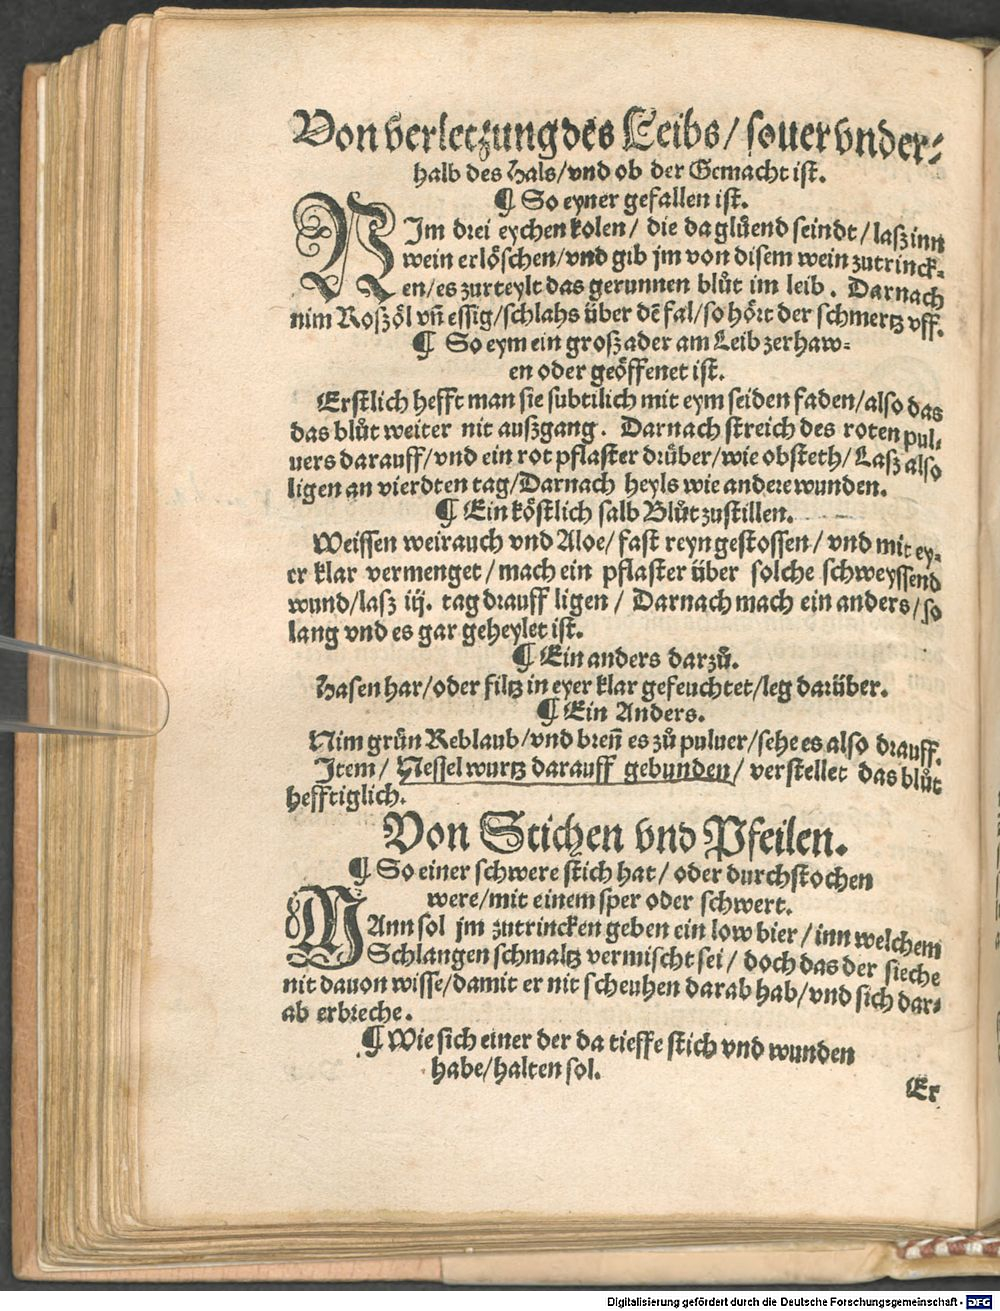 Von verletzung des Leibs / so uer vnder⸗
halb des Hals/vnd ob der Gemacht ist.
¶ So eyner gefallen ist.
NIm drei eychen kolen / die da gluͤend seindt / laſz inn
wein erlöschen/vnd gib jm von disem wein zutrinck⸗
en/es zurteylt das gerunnen bluͦt im leib. Darnach
nim Roſzöl vñ essig/schlahs über dē fal/so hört der schmertz vff.
¶ So eym ein groſz ader am Leib zerhaw⸗
en oder geöffenet ist.
Erstlich hefft man sie subtilich mit eym seiden faden/also das
das bluͦt weiter nit auſzgang. Darnach streich des roten pul⸗
uers darauff/vnd ein rot pflaster drüber/wie obsteth/Laſz also
ligen an vierdten tag/Darnach heyls wie andere wunden.
¶ Ein köstlich salb Bluͦt zustillen.
Weissen weirauch vnd Aloe/fast reyn gestossen/vnd mit ey⸗
er klar vermenget/mach ein pflaster über solche schweyssend
wund/laſz iij. tag drauff ligen / Darnach mach ein anders/so
lang vnd es gar geheylet ist.
¶ Ein anders darzuͦ.
Hasen har/oder filtz in eyer klar gefeuchtet/leg darüber.
¶ Ein Anders.
Nim gruͤn Reblaub/vnd breñ es zuͦ puluer/sehe es also drauff.
Item/ Nessel wurtz darauff gebunden/ verstellet das bluͦt
hefftiglich.
Von Stichen vnd Pfeilen.
¶ So einer schwere stich hat / oder durchstochen
were/mit einem sper oder schwert.
MAnn sol jm zutrincken geben ein low bier / inn welchem
Schlangen schmaltz vermischt sei / doch das der sieche
nit dauon wisse/damit er nit scheuhen darab hab/vnd sich dar⸗
ab erbreche.
¶ Wie sich einer der da tieffe stich vnd wunden
habe/halten sol.
Er
Digitalisierung gefördert durch die Deutsche Forschungsgemeinschaft - DFG